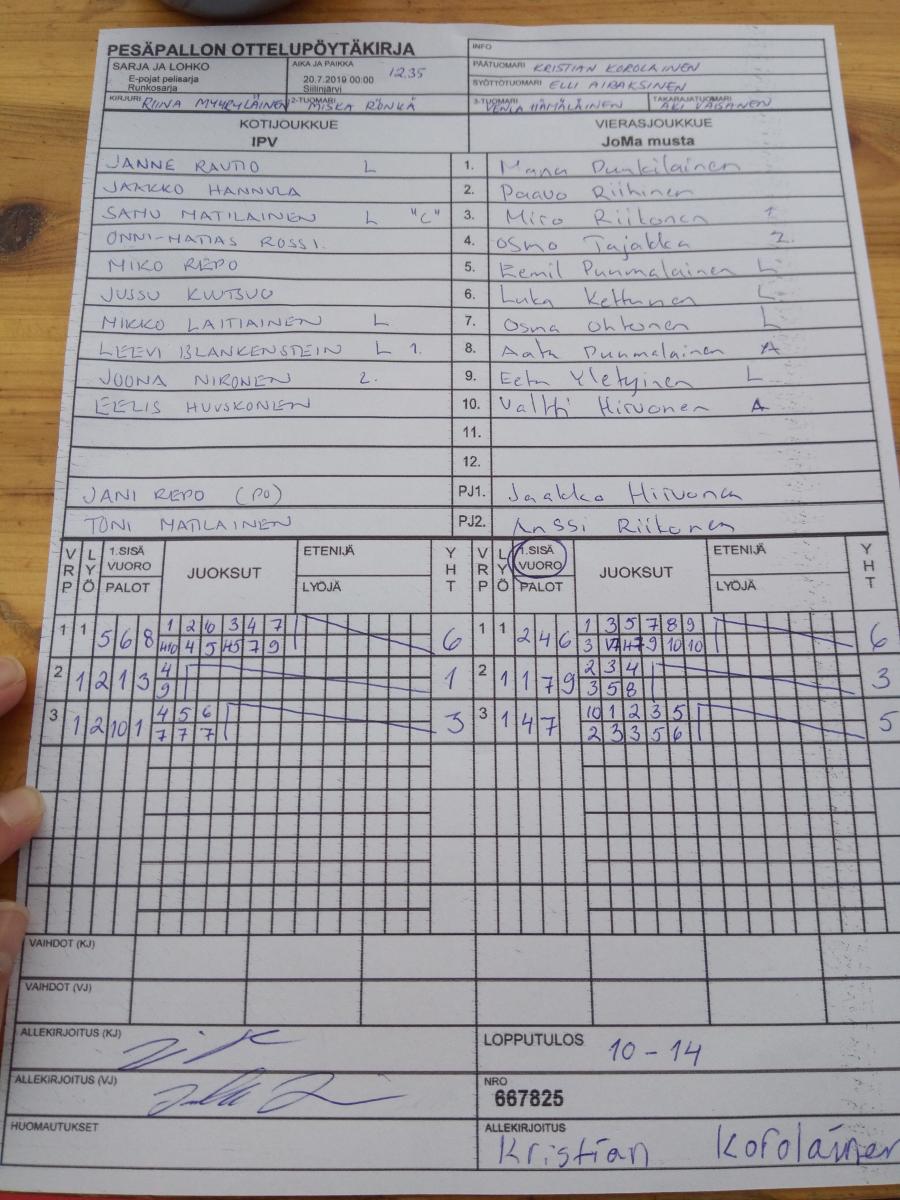 PESÄPALLON OTTELUPÖYTÄKIRJA
INFO
SARJA JA LOHKO
E-pojat pelisarja
Runkosarja
AIKA JA PAIKKA
20.7.2019 00:00 12.35
Siilinjärvi
PÄÄTUOMARI KRISTIAN KOROLAINEN
SYÖTTÖTUOMARI ELLI AIRAKSINEN
KIRJURI RIINA MYYRYLÄINEN 2-TUOMARI MISKA RÖNKÄ 3-TUOMARI VENLA HÄMÄLÄINEN TAKARAJATUOMARI AKI VÄISÄNEN
KOTIJOUKKUE VIERASJOUKKUE
IPV JoMa musta
JANNE RAUTIO L 1. Manu Punkilainen
JAAKKO HANNULA 2. Paavo Riihinen
SAMU MATILAINEN L "C" 3. Miro Riikonen 1.
ONNI-MATIAS ROSSI. 4. Osmo Tajakka 2.
MIKO REPO 5. Eemil Puumalainen L
JUSSU KUUTSUO 6. Luka Kettunen L
MIKKO LAITIAINEN L 7. Osma Ohtonen L
LEEVI BLANKENSTEIN L 1. 8. Aatu Puumalainen A
JOONA NIRONEN 2. 9. Eetu Yletyinen L
EELIS HUUSKONEN 10. Valtti Hirvonen A
11.
12.
JANI REPO (PO) PJ1. Jaakko Hirvonen
TONI MATILAINEN PJ2. Anssi Riikonen
VRP LYÖ 1.SISÄ VUORO PALOT JUOKSUT ETENIJÄ LYÖJÄ YHT VRP LYÖ 1.SISÄ VUORO PALOT JUOKSUT ETENIJÄ LYÖJÄ YHT
1 1 5 6 8 1 2 10 3 4 7 6 1 1 2 4 6 1 3 5 7 8 9 6
4 5 7 9 3 9 10 10
2 1 2 1 3 4 1 2 1 1 7 9 2 3 4 3
9 3 5 8
3 1 2 10 1 4 5 6 3 3 1 4 7 10 1 2 3 5 5
7 7 7 2 3 3 5 6
VAIHDOT (KJ)
VAIHDOT (VJ)
ALLEKIRJOITUS (KJ)
LOPPUTULOS 10 - 14
ALLEKIRJOITUS (VJ)
NRO
667825
HUOMAUTUKSET
ALLEKIRJOITUS
Kristian Korolainen